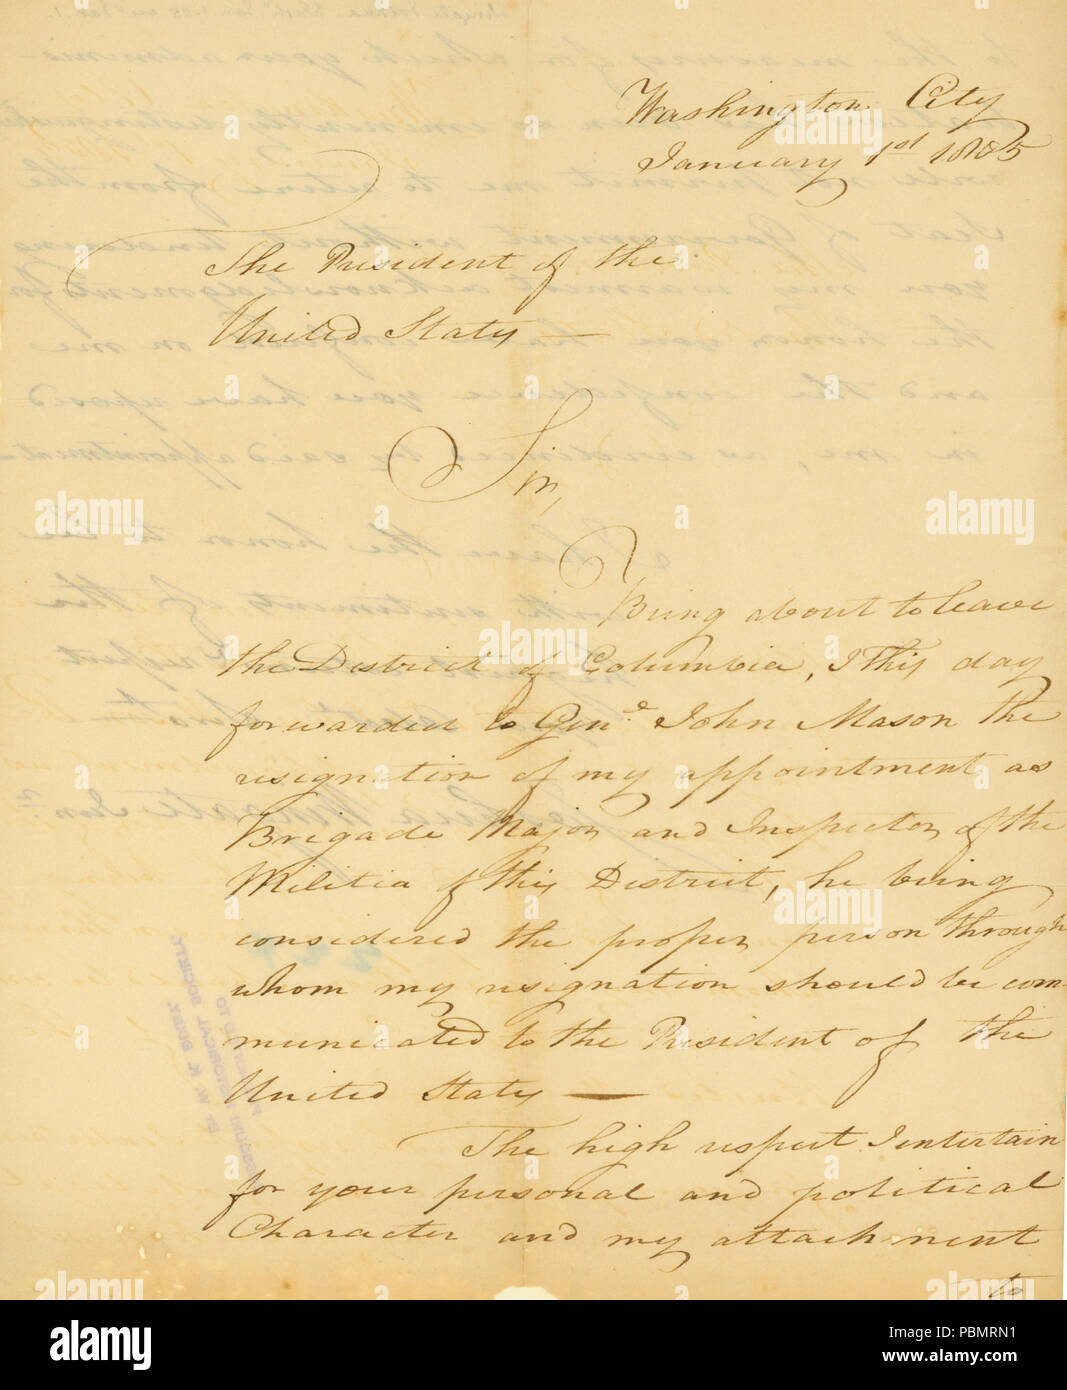 Washington City
January 1st 1805
The President of the
United States —
Sir,
Being about to leave
the District of Columbia, I this day
forwarded to Genl. John Mason the
resignation of my appointment as
Brigade Major and Inspector of the
Militia of this District, he being
considered the proper person through
whom my resignation should be com-
municated to the President of the
United States —
The high respect I entertain
for your personal and political
Character and my attachment
to
alamy
Image ID: PBMRN1
www.alamy.com